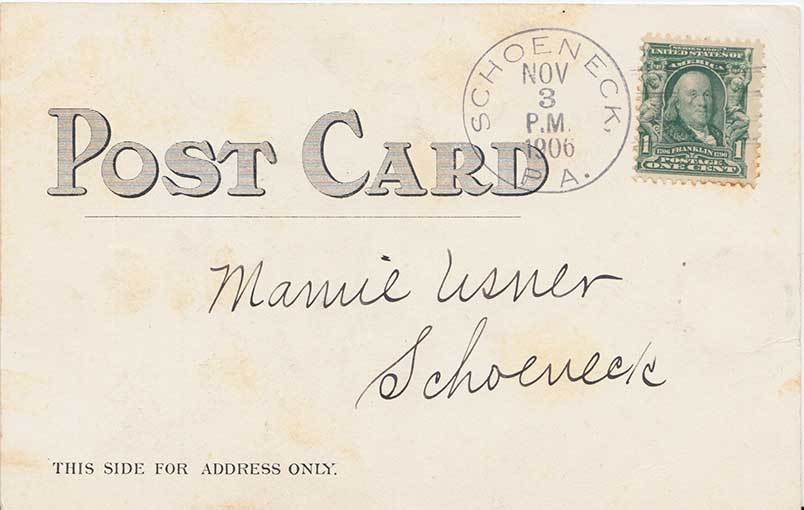 SCHOENECK, PA.
NOV
3
P.M.
1906
SERIES 1902
UNITED STATES OF
AMERICA
1 1706 FRANKLIN 1790 1
POSTAGE
ONE CENT
POST CARD
Mamie Usner
Schoeneck
THIS SIDE FOR ADDRESS ONLY.